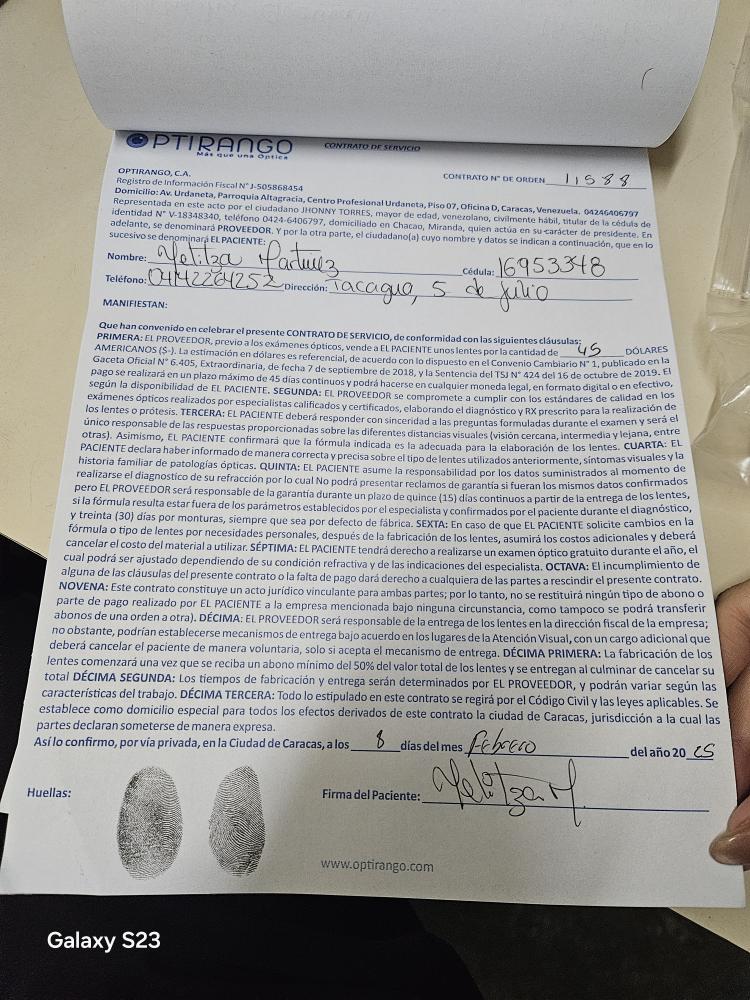 OPTIRANGO
Más que una Óptica
CONTRATO DE SERVICIO
OPTIRANGO, C.A.
CONTRATO N° DE ORDEN 11588
Registro de Información Fiscal N° J-505868454
Domicilio: Av. Urdaneta, Parroquia Altagracia, Centro Profesional Urdaneta, Piso 07, Oficina D, Caracas, Venezuela. 04246406797
Representada en este acto por el ciudadano JHONNY TORRES, mayor de edad, venezolano, civilmente hábil, titular de la cédula de
identidad N° V-18348340, teléfono 0424-6406797, domiciliado en Chacao, Miranda, quien actúa en su carácter de presidente. En
adelante, se denominará PROVEEDOR. Y por la otra parte, el ciudadano(a) cuyo nombre y datos se indican a continuación, que en lo
sucesivo se denominará EL PACIENTE:
Nombre: Yelitza Martinez Cédula: 16953348
Teléfono: 04142264252 Dirección: Tacagua, 5 de Julio
MANIFIESTAN:
Que han convenido en celebrar el presente CONTRATO DE SERVICIO, de conformidad con las siguientes cláusulas:
PRIMERA: EL PROVEEDOR, previo a los exámenes ópticos, vende a EL PACIENTE unos lentes por la cantidad de 45 DÓLARES
AMERICANOS ($-). La estimación en dólares es referencial, de acuerdo con lo dispuesto en el Convenio Cambiario N° 1, publicado en la
Gaceta Oficial N° 6.405, Extraordinaria, de fecha 7 de septiembre de 2018, y la Sentencia del TSJ N° 424 del 16 de octubre de 2019. El
pago se realizará en un plazo máximo de 45 días continuos y podrá hacerse en cualquier moneda legal, en formato digital o en efectivo,
según la disponibilidad de EL PACIENTE. SEGUNDA: EL PROVEEDOR se compromete a cumplir con los estándares de calidad en los
exámenes ópticos realizados por especialistas calificados y certificados, elaborando el diagnóstico y RX prescrito para la realización de
los lentes o prótesis. TERCERA: EL PACIENTE deberá responder con sinceridad a las preguntas formuladas durante el examen y será el
único responsable de las respuestas proporcionadas sobre las diferentes distancias visuales (visión cercana, intermedia y lejana, entre
otras). Asimismo, EL PACIENTE confirmará que la fórmula indicada es la adecuada para la elaboración de los lentes. CUARTA: EL
PACIENTE declara haber informado de manera correcta y precisa sobre el tipo de lentes utilizados anteriormente, síntomas visuales y la
historia familiar de patologías ópticas. QUINTA: EL PACIENTE asume la responsabilidad por los datos suministrados al momento de
realizarse el diagnostico de su refracción por lo cual No podrá presentar reclamos de garantía si fueran los mismos datos confirmados
pero EL PROVEEDOR será responsable de la garantía durante un plazo de quince (15) días continuos a partir de la entrega de los lentes,
si la fórmula resulta estar fuera de los parámetros establecidos por el especialista y confirmados por el paciente durante el diagnóstico,
y treinta (30) días por monturas, siempre que sea por defecto de fábrica. SEXTA: En caso de que EL PACIENTE solicite cambios en la
fórmula o tipo de lentes por necesidades personales, después de la fabricación de los lentes, asumirá los costos adicionales y deberá
cancelar el costo del material a utilizar. SÉPTIMA: EL PACIENTE tendrá derecho a realizarse un examen óptico gratuito durante el año, el
cual podrá ser ajustado dependiendo de su condición refractiva y de las indicaciones del especialista. OCTAVA: El incumplimiento de
alguna de las cláusulas del presente contrato o la falta de pago dará derecho a cualquiera de las partes a rescindir el presente contrato.
NOVENA: Este contrato constituye un acto jurídico vinculante para ambas partes; por lo tanto, no se restituirá ningún tipo de abono o
parte de pago realizado por EL PACIENTE a la empresa mencionada bajo ninguna circunstancia, como tampoco se podrá transferir
abonos de una orden a otra). DÉCIMA: EL PROVEEDOR será responsable de la entrega de los lentes en la dirección fiscal de la empresa;
no obstante, podrían establecerse mecanismos de entrega bajo acuerdo en los lugares de la Atención Visual, con un cargo adicional que
deberá cancelar el paciente de manera voluntaria, solo si acepta el mecanismo de entrega. DÉCIMA PRIMERA: La fabricación de los
lentes comenzará una vez que se reciba un abono mínimo del 50% del valor total de los lentes y se entregan al culminar de cancelar su
total DÉCIMA SEGUNDA: Los tiempos de fabricación y entrega serán determinados por EL PROVEEDOR, y podrán variar según las
características del trabajo. DÉCIMA TERCERA: Todo lo estipulado en este contrato se regirá por el Código Civil y las leyes aplicables. Se
establece como domicilio especial para todos los efectos derivados de este contrato la ciudad de Caracas, jurisdicción a la cual las
partes declaran someterse de manera expresa.
Así lo confirmo, por vía privada, en la Ciudad de Caracas, a los 8 días del mes Febrero del año 20 25
Huellas:
Firma del Paciente: Yelitza M.
www.optirango.com
Galaxy S23